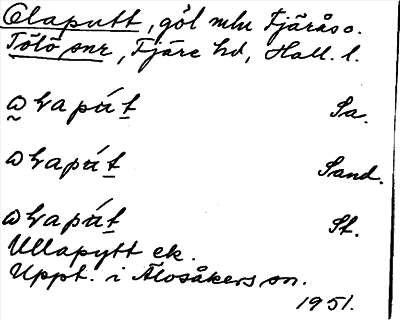 Olaputt, göl mlu Fjäråso.
Tölö snr, Fjäre hd, Hall. l.
ωLapút Sa.
ωLapút Sand.
ωLapút St.
Ullapytt ek.
Uppt. i Älvsåkers sn.
1951.